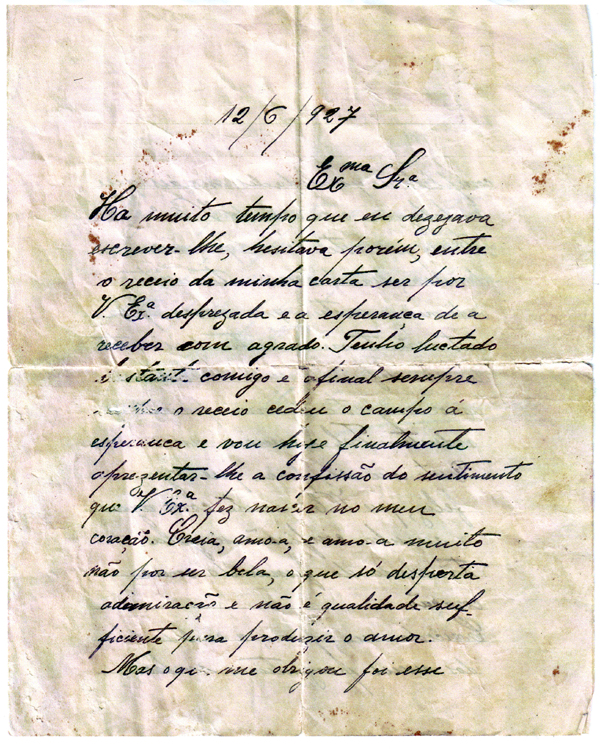 12/6/927
Exma Sra
Ha muito tempo que eu dezejava
escrever-lhe, hesitava porém, entre
o receio da minha carta ser por
V. Exa. desprezada e a esperança de a
receber com agrado. Tenho luctado
comigo e afinal sempre
o receio cedeu o campo á
esperança e vou hoje finalmente
aprezentar-lhe a confissão do sentimento
que V. Exa. fez nascer no meu
coração. Creia, amo-a, e amo-a muito
não por ser bela, o que só desperta
admiração e não é qualidade suf-
ficiente para produzir o amor.
Mas o que me obrigou foi esse